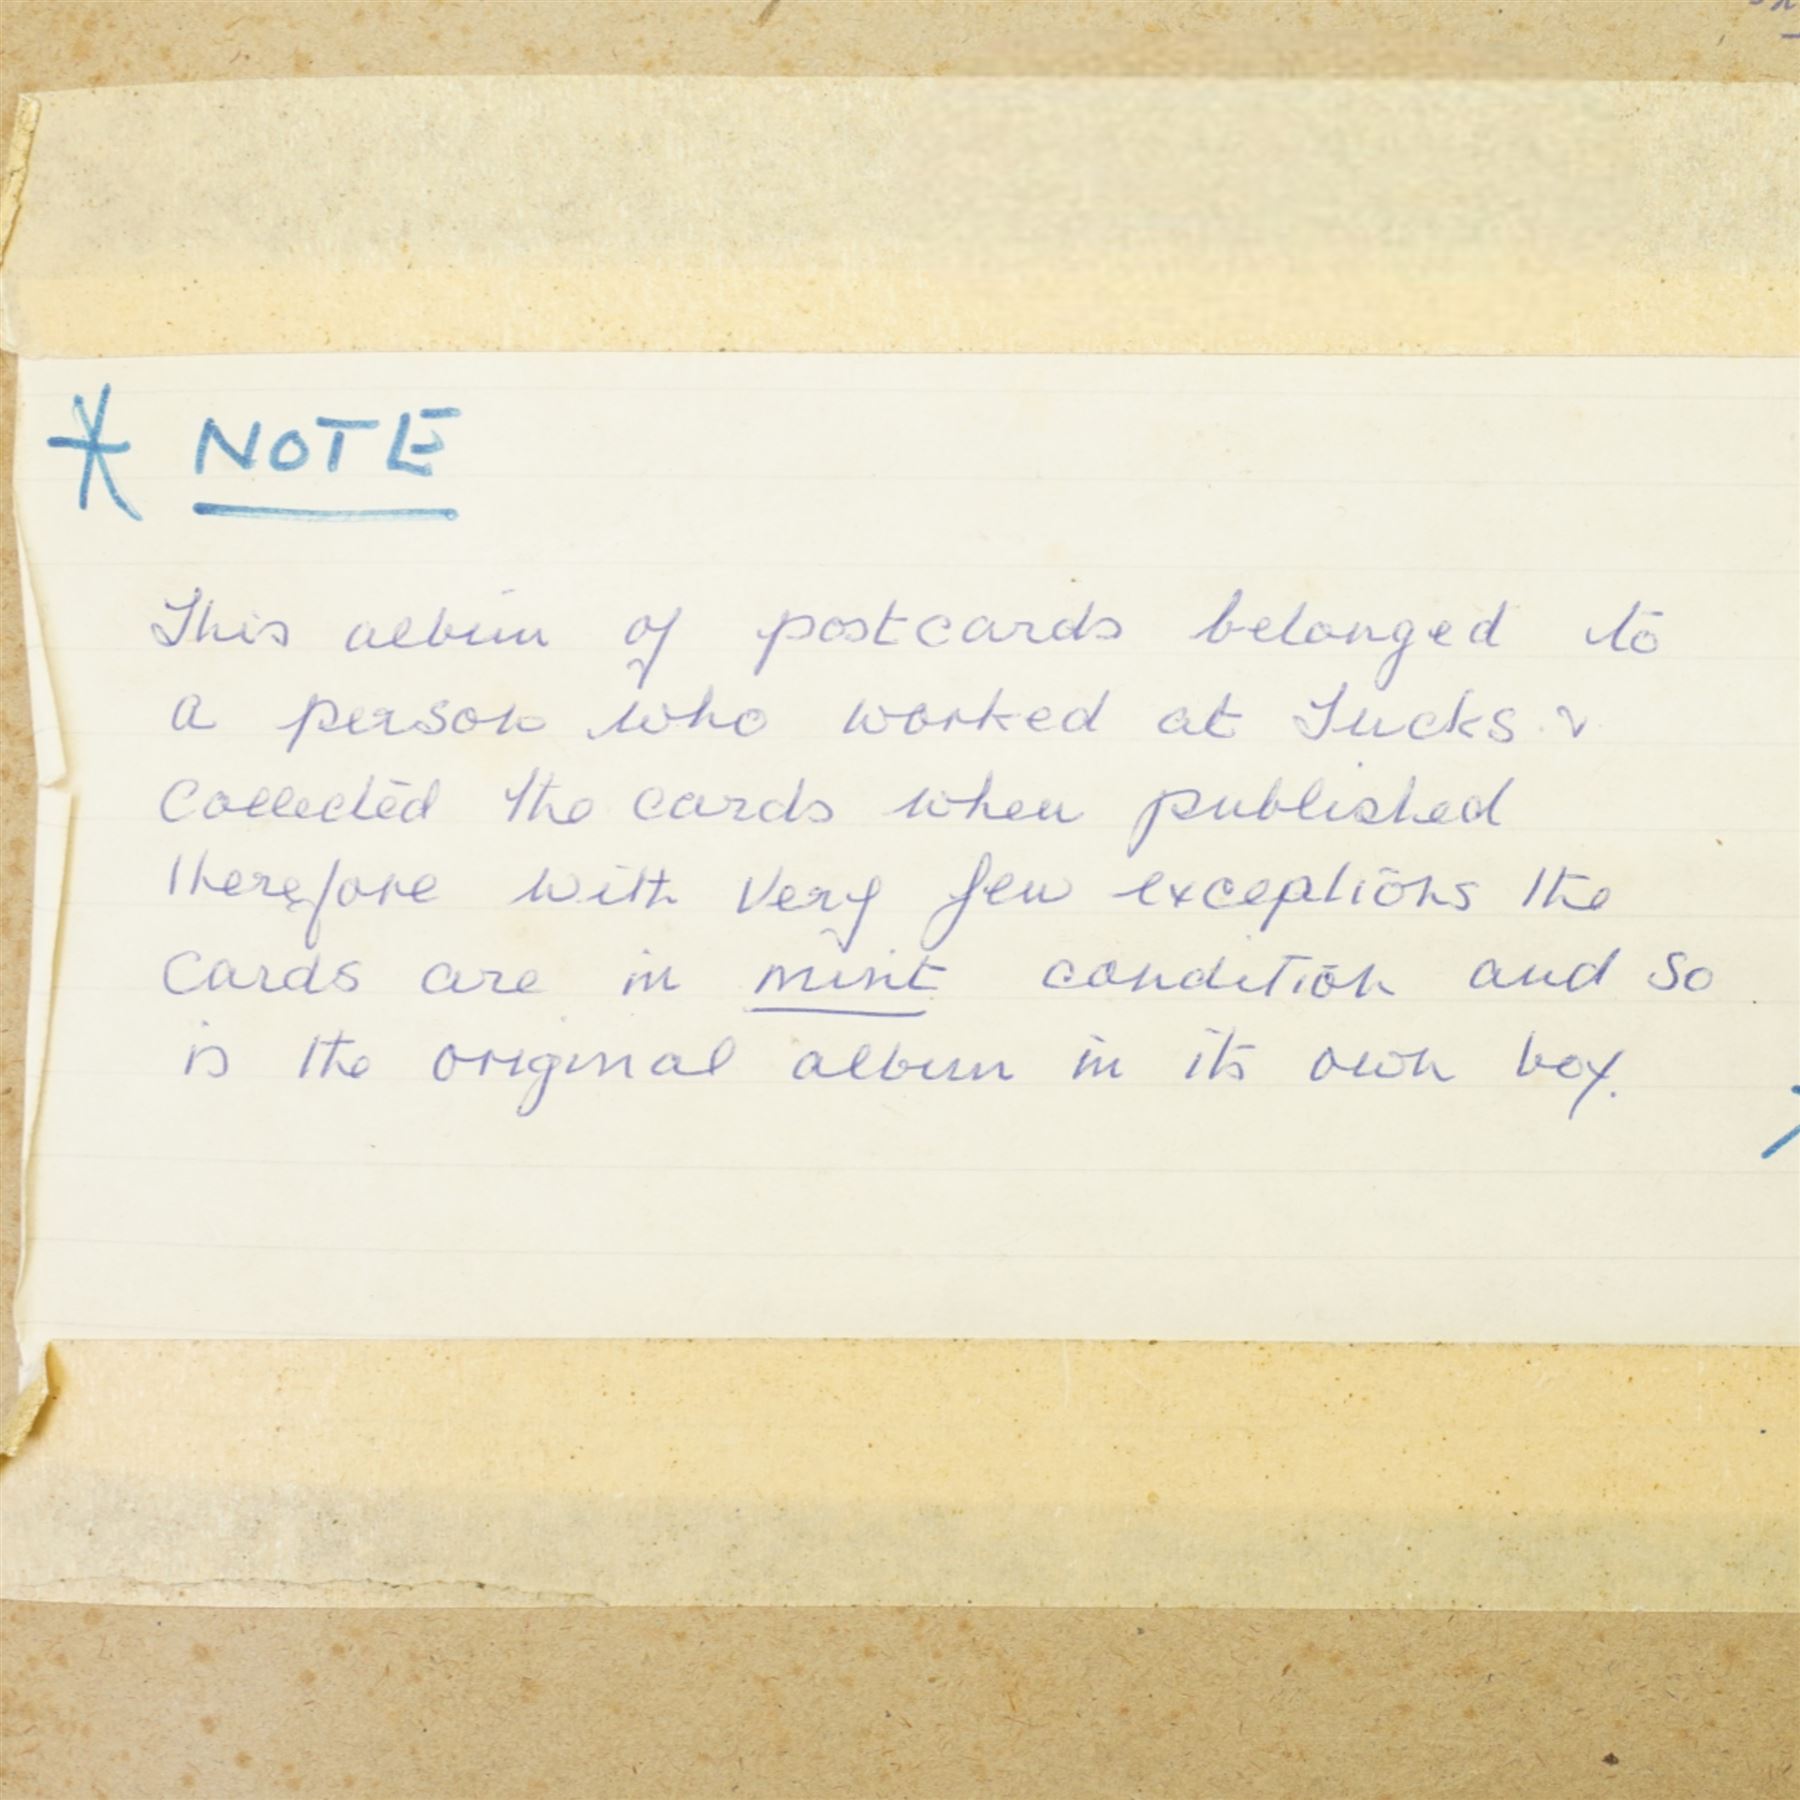 * NOTE
This album of postcards belonged to
a person who worked at Tucks &
collected the cards when published
therefore with very few exceptions the
cards are in mint condition and so
is the original album in its own box.